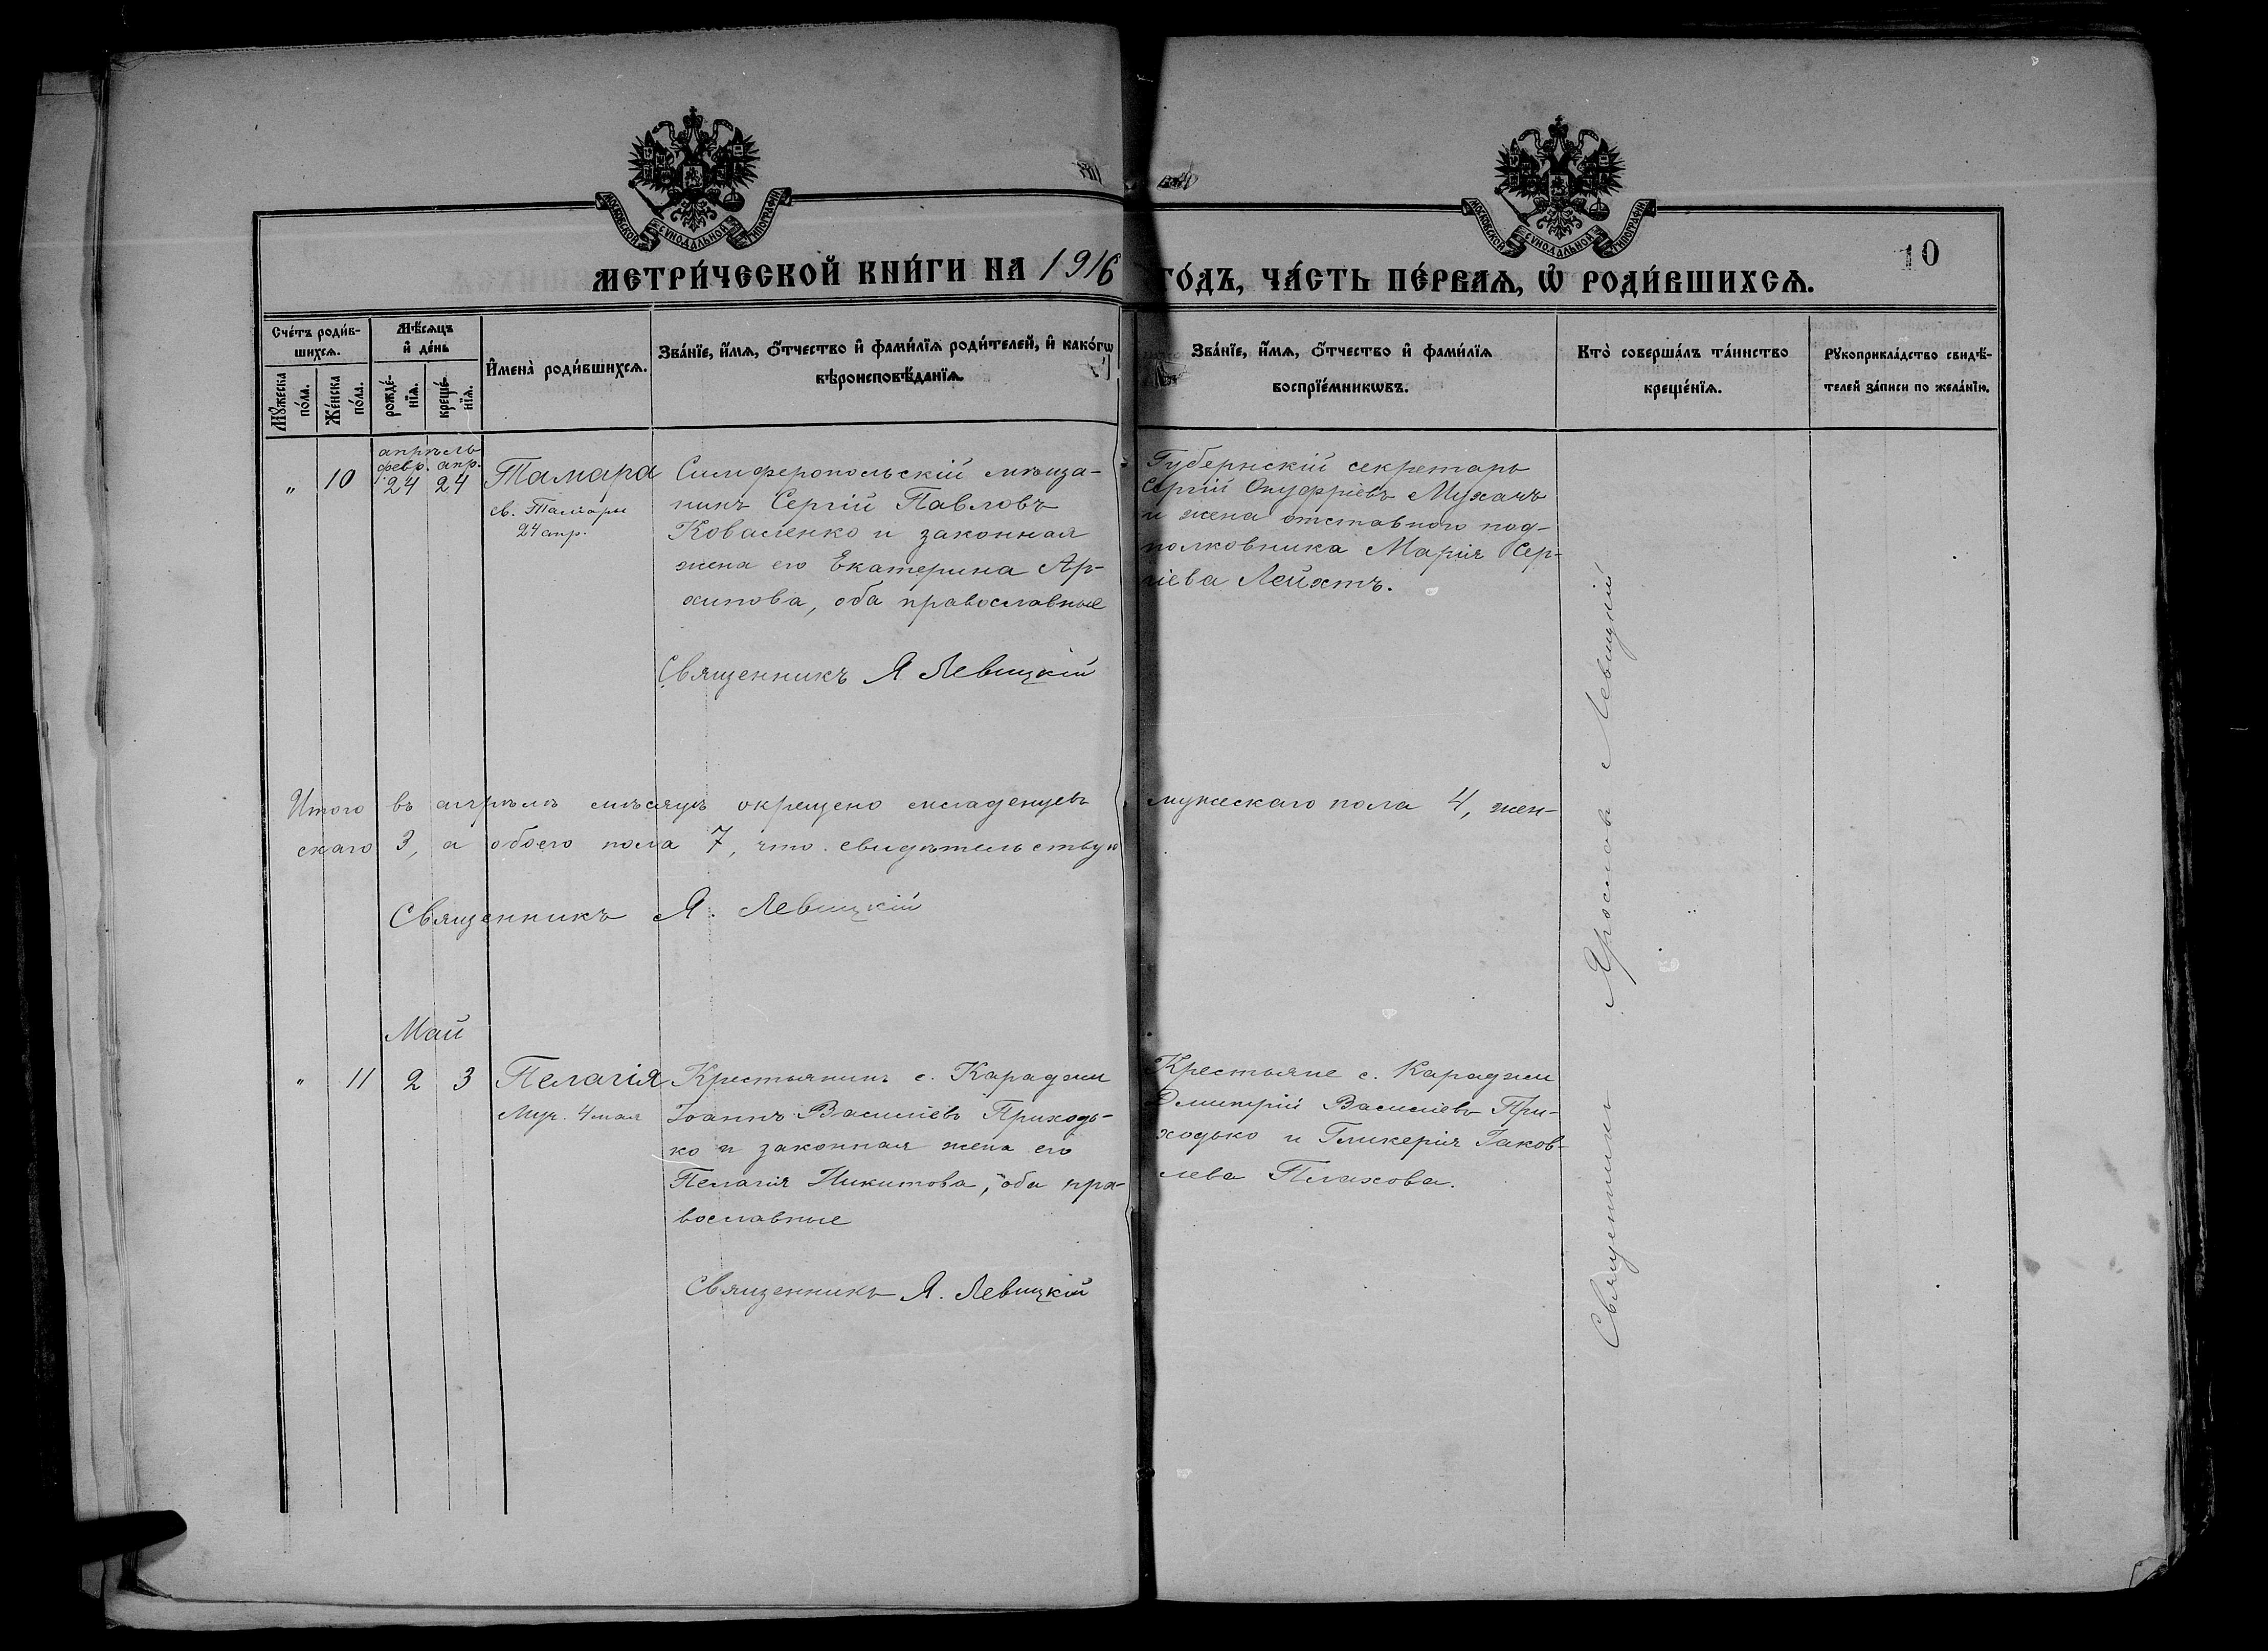 МОСКОВСКОЙ СѴНОДАЛЬНОЙ ТИПОГРАФІИ
МОСКОВСКОЙ СѴНОДАЛЬНОЙ ТИПОГРАФІИ
10
МЕТРИ́ЧЕСКОЙ КНИ́ГИ НА 1916 ГО́ДЪ, ЧА́СТЬ ПЕ́РВАЯ, Ѡ҆ РОДИ́ВШИХСЯ.
Сче́тъ роди́в-
шихся.
Мꙋ́жеска по́ла.
Же́нска по́ла.
Мѣ́сяцъ
и҆ де́нь
рожде́-
нїя.
креще́-
нїя.
И҆мена̀ роди́вшихся.
Зва́нїе, и҆́мя, ѻ҆́тчество и҆ фами́лїя роди́телей, и҆ како́гѡ
вѣроисповѣ́данїя.
Зва́нїе, и҆́мя, ѻ҆́тчество и҆ фами́лїя
воспрїе́мникѡвъ.
Кто̀ соверша́лъ та́инство
креще́нїя.
Рꙋкоприкла́дство свидѣ́-
телей за́писи по жела́нїю.
апрѣль
февр. апр.
" 10 24 24 Тамара
св. Тамары
24 апр.
Симферопольскій мѣща-
нинъ Сергій Павловъ
Коваленко и законная
жена его Екатерина Ар-
хипова, оба православные
Священникъ Я Левицкій
Губернскій секретарь
Сергій Онуфріевъ Мухачъ
и жена отставного под-
полковника Марія Сер-
гіева Лейхтъ.
Итого въ апрѣлѣ мѣсяцѣ окрещено младенцевъ мужескаго пола 4, жен-
скаго 3, а обоего пола 7, что свидѣтельствую
Священникъ Я. Левицкій
Май
" 11 2 3 Пелагія
Муч. 4 мая
Крестьянинъ с. Караджи
Іоаннъ Василіевъ Приходь-
ко и законная жена его
Пелагія Никитова, оба пра-
вославные
Священникъ Я. Левицкій
Крестьяне с. Караджи
Димитрій Василіевъ При-
ходько и Гликерія Іаков-
лева Плахова.
Священникъ Ярославъ Левицкій